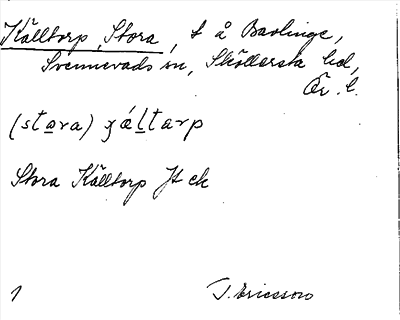 Källtorp, Stora, t å Bavlinge,
Svennevads sn, Sköllersta hd,
Ör. l.
(stara) gáltarp
Stora Källtorp Jt ek
1 J. Ericsson